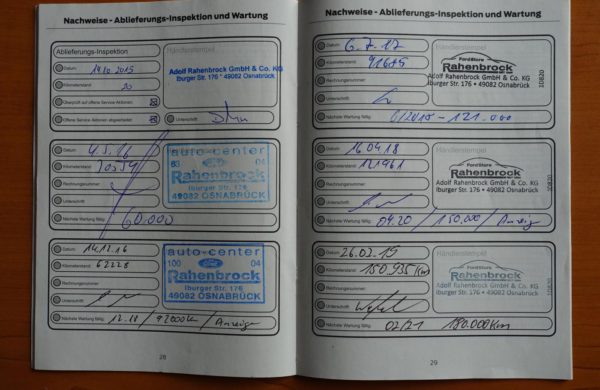 Nachweise - Ablieferungs-Inspektion und Wartung
Ablieferungs-Inspektion
Händlerstempel
Datum 19.10.2015
Kilometerstand 20
Überprüft auf offene Service-Aktionen:
Offene Service-Aktionen abgearbeitet:
Unterschrift
Adolf Rahenbrock GmbH & Co. KG
Iburger Str. 176 * 49082 Osnabrück
Datum 4.5.16
Kilometerstand
Rechnungsnummer
Unterschrift
Nächste Wartung fällig: 60.000
auto-center
83 Ford 04
Rahenbrock
Iburger Str. 176
49082 OSNABRÜCK
Datum 14.12.16
Kilometerstand 62228
Rechnungsnummer
Unterschrift
Nächste Wartung fällig: 12.18 / 92000 km / Anzeige
auto-center
100 Ford 04
Rahenbrock
Iburger Str. 176
49082 OSNABRÜCK
28
Nachweise - Ablieferungs-Inspektion und Wartung
Datum 6.7.17
Kilometerstand 91645
Rechnungsnummer
Unterschrift
Nächste Wartung fällig:
Händlerstempel
FordStore
Rahenbrock
Adolf Rahenbrock GmbH & Co. KG
Iburger Str. 176 • 49082 Osnabrück
10820
Datum 16.04.18
Kilometerstand 121961
Rechnungsnummer
Unterschrift
Nächste Wartung fällig: 04.20 / 150.000 / Anzeige
Händlerstempel
FordStore
Rahenbrock
Adolf Rahenbrock GmbH & Co. KG
Iburger Str. 176 • 49082 Osnabrück
10820
Datum 26.02.19
Kilometerstand 150.935 Km
Rechnungsnummer
Unterschrift
Nächste Wartung fällig: 02/21 180.000 Km
Händlerstempel
FordStore
Rahenbrock
Adolf Rahenbrock GmbH & Co. KG
Iburger Str. 176 • 49082 Osnabrück
10820
29